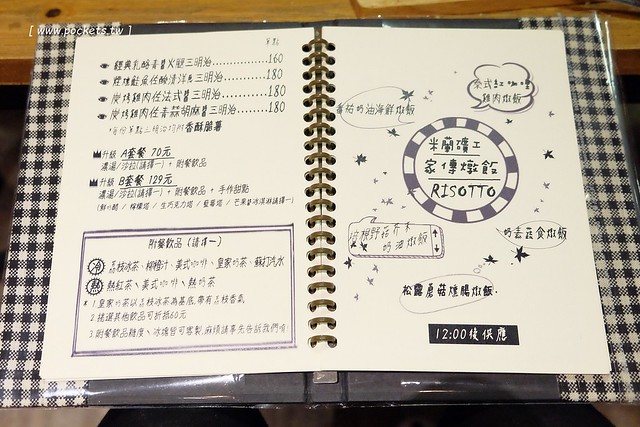 [ www.pockets.tw ]
單點
經典乳酪青醬火腿三明治...............160
煙燻鮭魚佐酸漬洋蔥三明治...........180
炭烤雞肉佐法式醬三明治...............180
炭烤雞肉佐青蒜胡麻醬三明治.......180
*每份單點三明治均附香酥脆薯
升級 A套餐 70元
濃湯/沙拉(請擇一) + 附餐飲品
升級 B套餐 129元
濃湯/沙拉(請擇一) + 附餐飲品 + 手作甜點
附餐飲品 (請擇一)
冷 荔枝冰茶、柳橙汁、美式咖啡、皇家奶茶、蘇打汽水
熱 熱紅茶、美式咖啡、熱奶茶
* 1.皇家奶茶以荔枝冰茶為基底,帶有荔枝香氣
2.挑選其他飲品可折抵60元
3.附餐飲品糖度、冰塊皆可客製,麻煩請事先告訴我們唷!
泰式紅咖哩
雞肉燉飯
番茄奶油海鮮燉飯
米蘭礦工
家傳燉飯
RISOTTO
奶香蔬食燉飯
奶油燉飯
松露蘑菇燻腸燉飯.
12:00後供應